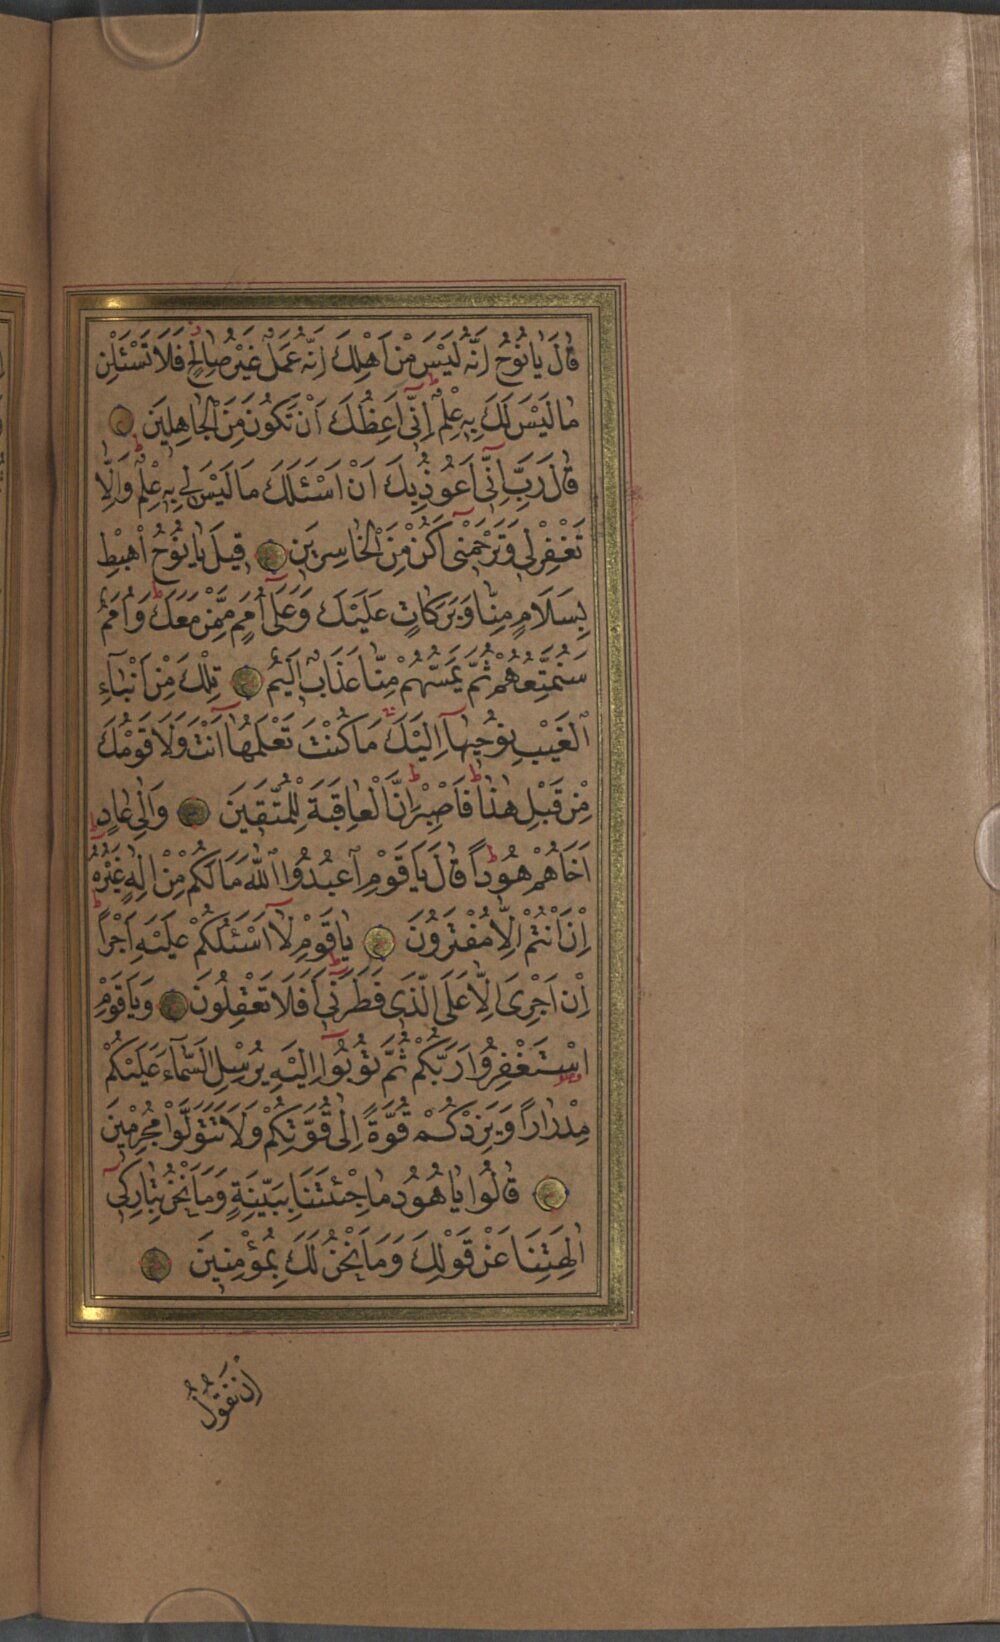 قَالَ يَا نُوحُ اِنَّهُ لَيْسَ مِنْ اَهْلِكَ اِنَّهُ عَمَلٌ غَيْرُ صَالِحٍ فَلَا تَسْئَلْنِ
مَا لَيْسَ لَكَ بِهِ عِلْمٌ اِنِّى اَعِظُكَ اَنْ تَكُونَ مِنَ الْجَاهِلِينَ
قَالَ رَبِّ اِنِّى اَعُوذُ بِكَ اَنْ اَسْئَلَكَ مَا لَيْسَ لِى بِهِ عِلْمٌ وَاِلَّا
تَغْفِرْ لِى وَتَرْحَمْنِى اَكُنْ مِنَ الْخَاسِرِينَ قِيلَ يَا نُوحُ اهْبِطْ
بِسَلَامٍ مِنَّا وَبَرَكَاتٍ عَلَيْكَ وَعَلَى اُمَمٍ مِمَّنْ مَعَكَ وَاُمَمٌ
سَنُمَتِّعُهُمْ ثُمَّ يَمَسُّهُمْ مِنَّا عَذَابٌ اَلِيمٌ تِلْكَ مِنْ اَنْبَاءِ
الْغَيْبِ نُوحِيهَا اِلَيْكَ مَا كُنْتَ تَعْلَمُهَا اَنْتَ وَلَا قَوْمُكَ
مِنْ قَبْلِ هٰذَا فَاصْبِرْ اِنَّ الْعَاقِبَةَ لِلْمُتَّقِينَ وَاِلٰى عَادٍ
اَخَاهُمْ هُودًا قَالَ يَا قَوْمِ اعْبُدُوا اللّٰهَ مَا لَكُمْ مِنْ اِلٰهٍ غَيْرُهُ
اِنْ اَنْتُمْ اِلَّا مُفْتَرُونَ يَا قَوْمِ لَا اَسْئَلُكُمْ عَلَيْهِ اَجْرًا
اِنْ اَجْرِىَ اِلَّا عَلَى الَّذِى فَطَرَنِى اَفَلَا تَعْقِلُونَ وَيَا قَوْمِ
اسْتَغْفِرُوا رَبَّكُمْ ثُمَّ تُوبُوا اِلَيْهِ يُرْسِلِ السَّمَاءَ عَلَيْكُمْ
مِدْرَارًا وَيَزِدْكُمْ قُوَّةً اِلٰى قُوَّتِكُمْ وَلَا تَتَوَلَّوْا مُجْرِمِينَ
قَالُوا يَا هُودُ مَا جِئْتَنَا بِبَيِّنَةٍ وَمَا نَحْنُ بِتَارِكِى
اٰلِهَتِنَا عَنْ قَوْلِكَ وَمَا نَحْنُ لَكَ بِمُؤْمِنِينَ
اِنْ نَقُولُ